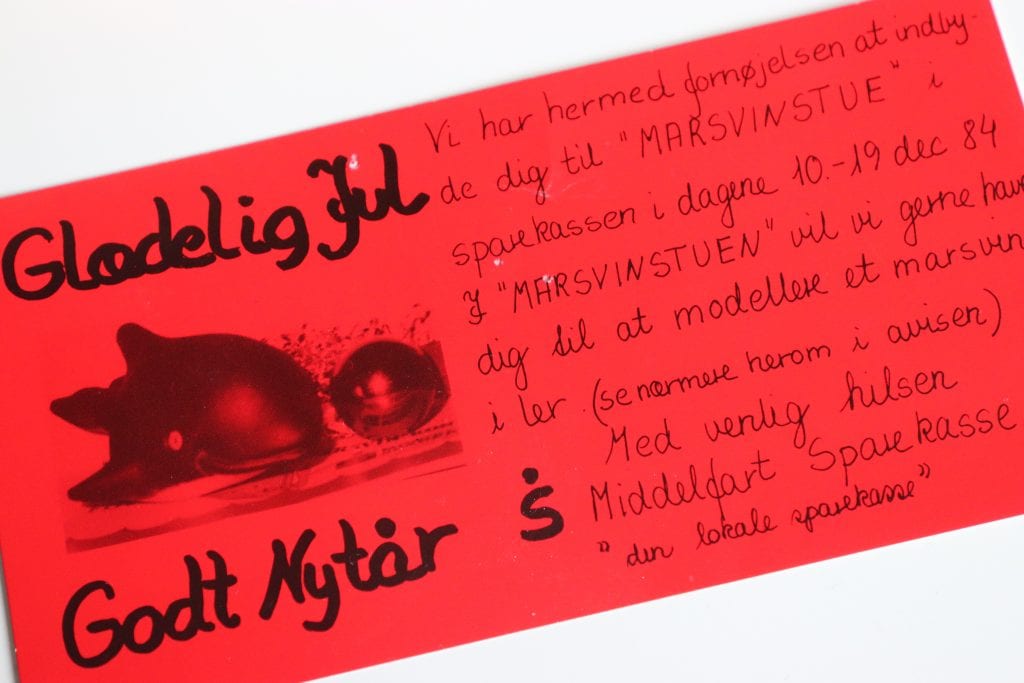 Glædelig Jul
Godt Nytår
Vi har hermed fornøjelsen at indby-
de dig til "MARSVINSTUE" i
sparekassen i dagene 10.-19 dec 84
I "MARSVINSTUEN" vil vi gerne have
dig til at modellere et marsvin
i ler. (se nærmere herom i avisen)
Med venlig hilsen
Middelfart Sparekasse
"den lokale sparekasse"